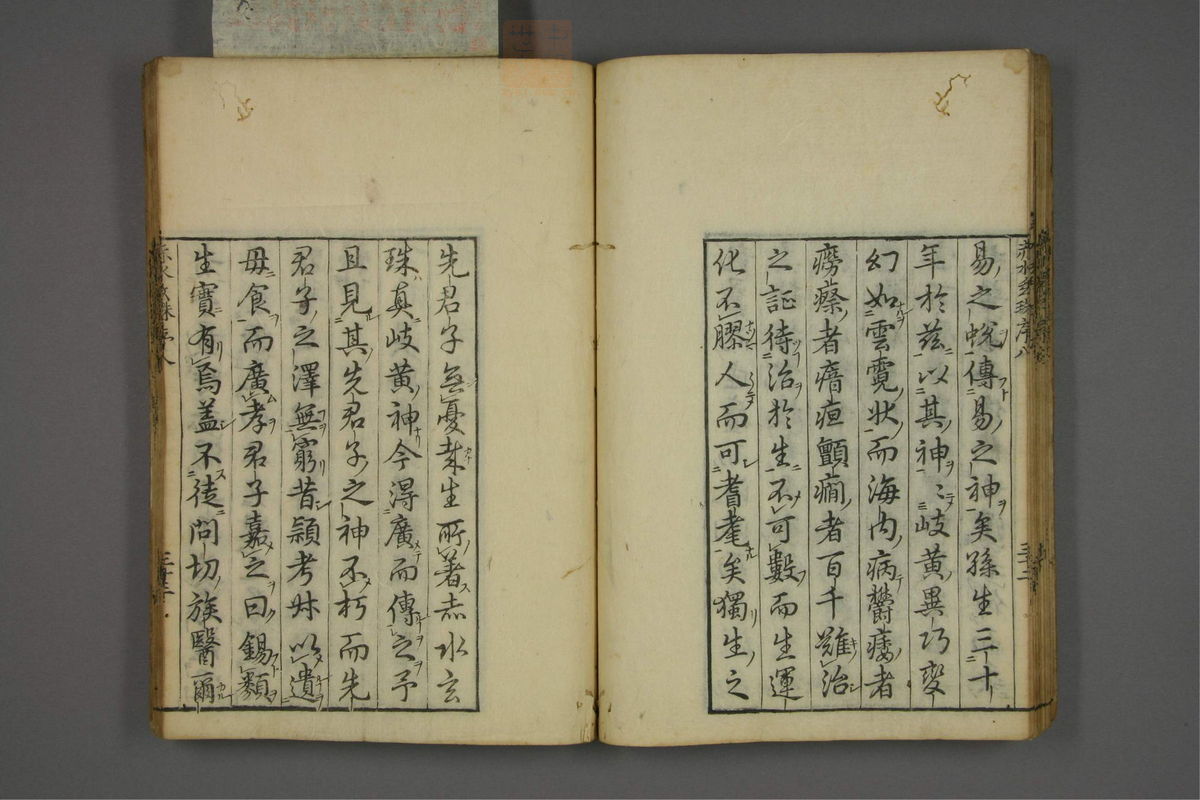 易之蛻傳易之神矣孫生三十
年於茲以其神〻岐黃異巧變
幻如雲霓狀而海内病欝痿者
癆瘵者瘖疸顫癎者百千難治
之証待治於生不可數而生運
化不膠人而可耆耄矣獨生之
先君子無憂若生所著赤水玄
珠真岐黃神今得廣而傳之予
且見其先君子之神不朽而先
君子之澤無窮昔頴考叔以遺
母食而廣孝君子嘉之曰錫類
生實有焉盖不徒問切族醫爾